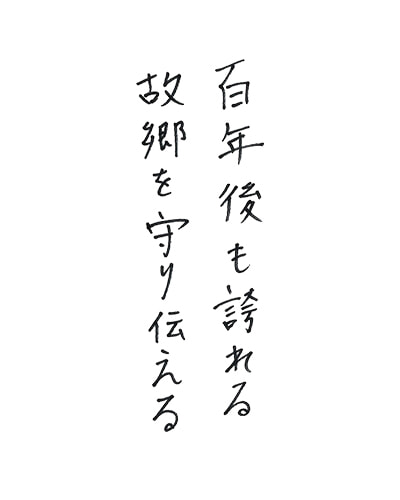 百年後も誇れる
故郷を守り伝える